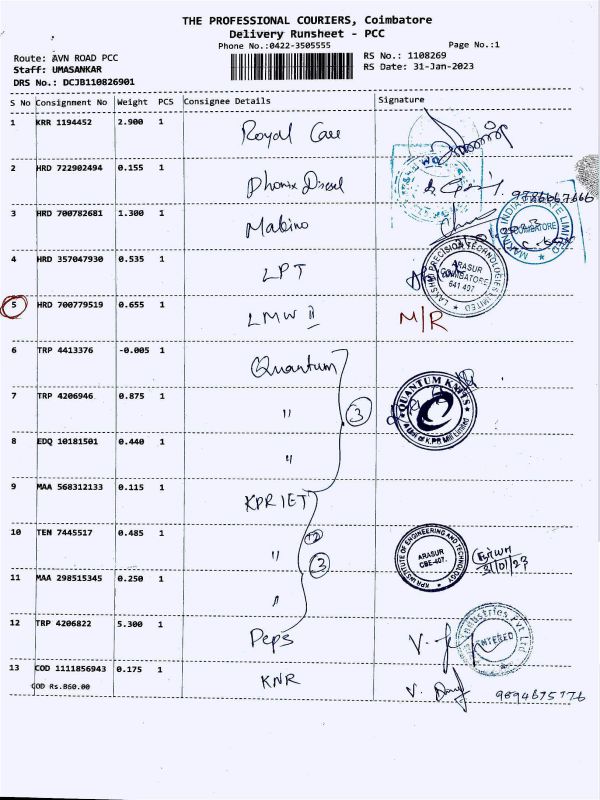 THE PROFESSIONAL COURIERS, Coimbatore
Delivery Runsheet - PCC
Phone No.:0422-3505555
Page No.:1
Route: AVN ROAD PCC
RS No.: 1108269
Staff: UMASANKAR
RS Date: 31-Jan-2023
DRS No.: DCJB110826901
S No Consignment No Weight PCS Consignee Details Signature
1 KRR 1194452 2.900 1 Royal Care
2 HRD 722902494 0.155 1 Phonix Diesel 9786667666
3 HRD 700782681 1.300 1 Makino
COIMBATORE
4 HRD 357047930 0.535 1 LPT
LAKSHMI PRECISION TECHNOLOGIES LIMITED
ARASUR
COIMBATORE
641 407
5 HRD 700779519 0.655 1 LMW II M/R
6 TRP 4413376 -0.005 1 Quantum
7 TRP 4206946 0.875 1 " 3
QUANTUM KNITS
A Unit of K.P.R Mill Limited
8 EDQ 10181501 0.440 1 "
9 MAA 568312133 0.115 1 KPRIET
10 TEN 7445517 0.485 1 " 3
KPR INSTITUTE OF ENGINEERING AND TECHNOLOGY
ARASUR
CBE-407.
31/01/23
11 MAA 298515345 0.250 1 "
12 TRP 4206822 5.300 1 Peps
Industries Pvt Ltd
ENTERED
13 COD 1111856943 0.175 1 KNR
COD Rs.860.00
9894675776